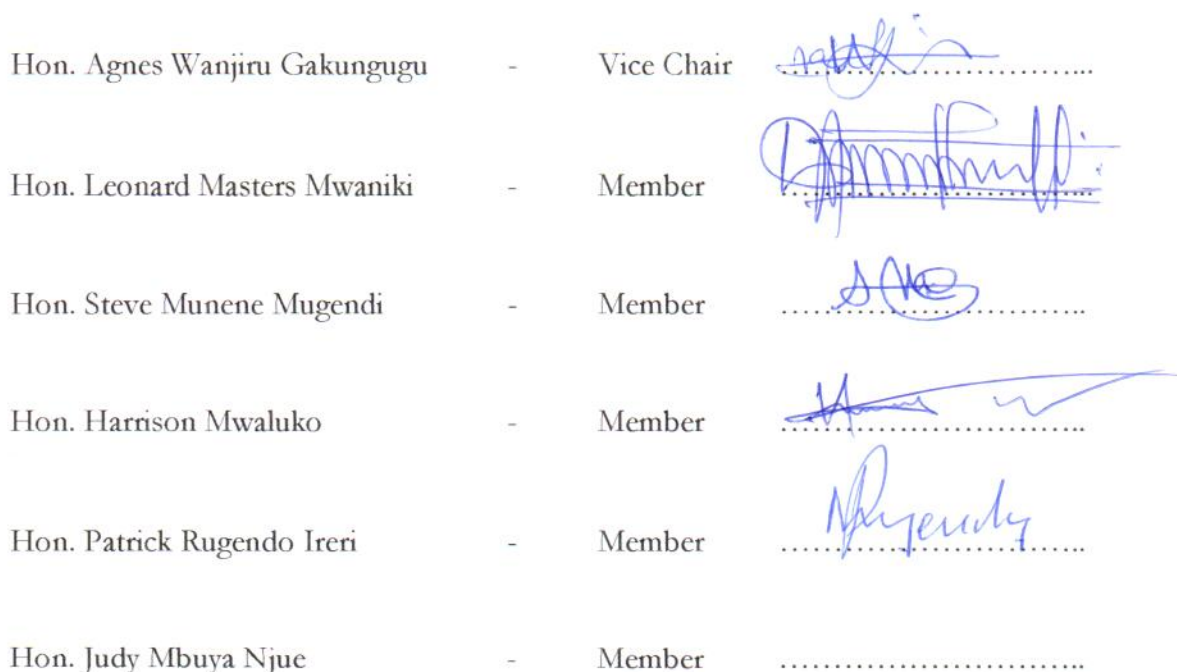 Hon. Agnes Wanjiru Gakungugu - Vice Chair ..............................
Hon. Leonard Masters Mwaniki - Member ..............................
Hon. Steve Munene Mugendi - Member ..............................
Hon. Harrison Mwaluko - Member ..............................
Hon. Patrick Rugendo Ireri - Member ..............................
Hon. Judy Mbuya Njue - Member ..............................